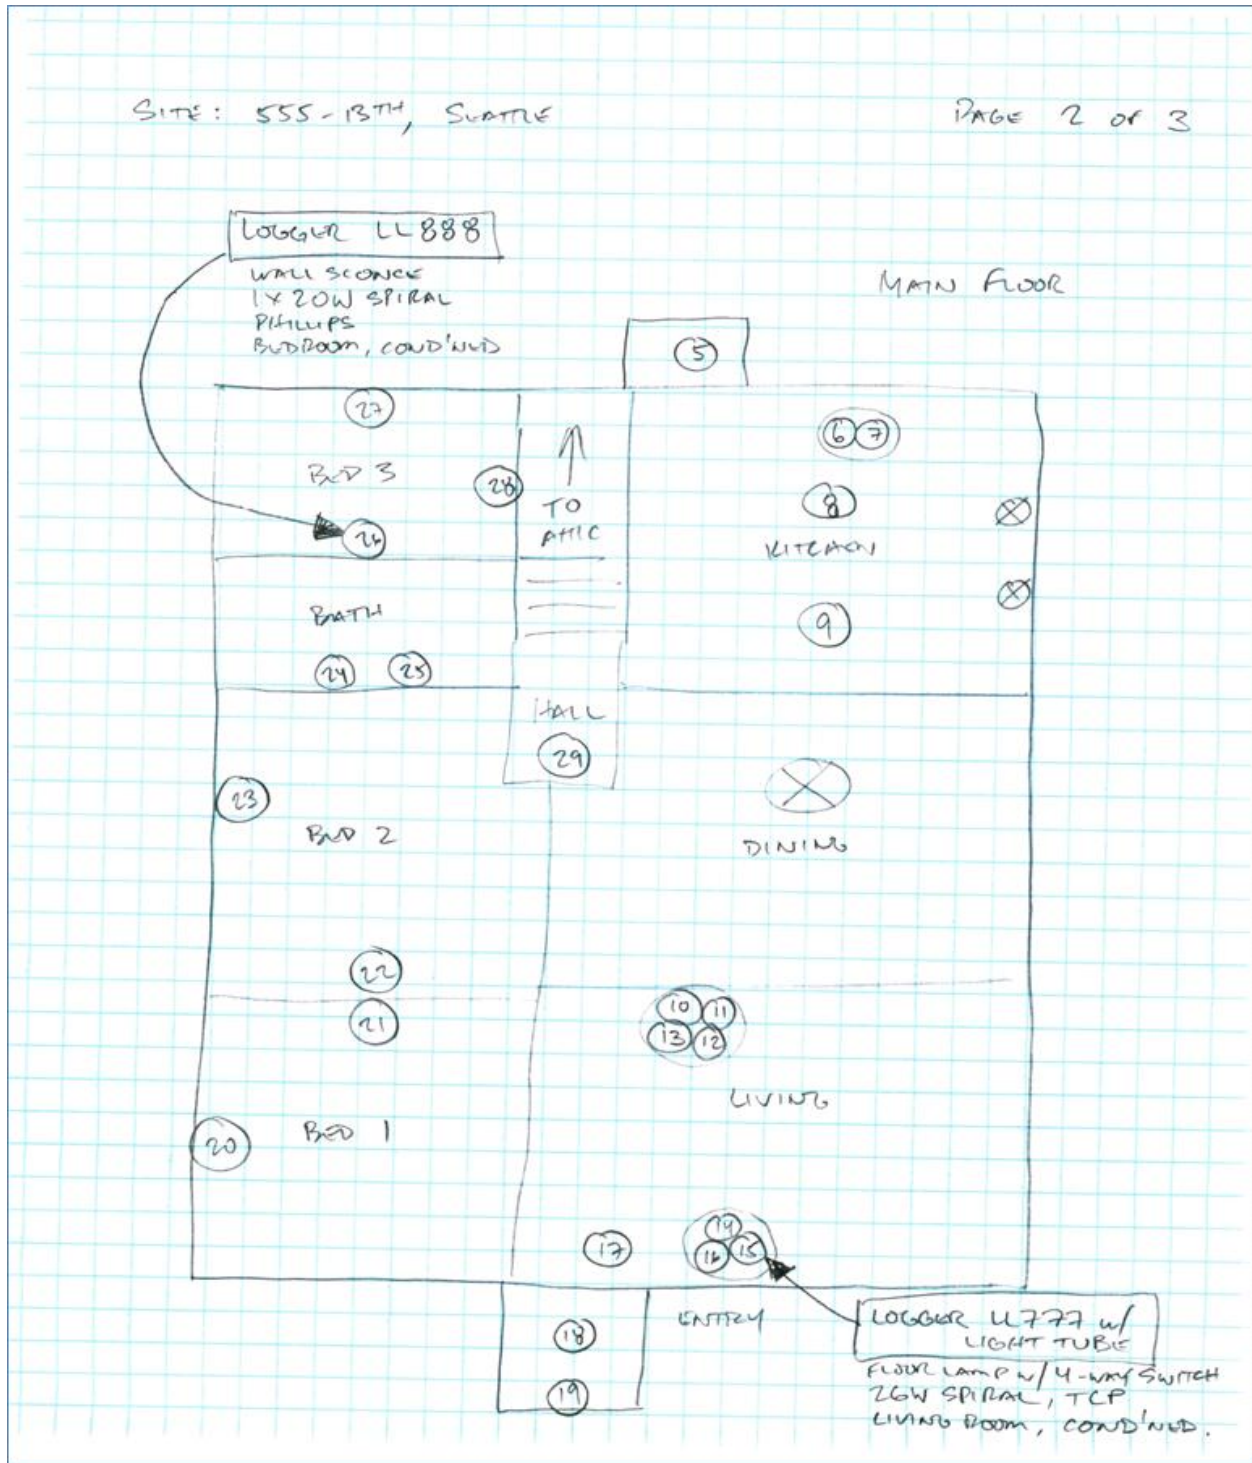 SITE: 555-13TH, SEATTLE
PAGE 2 OF 3
LOGGER LL888
WALL SCONCE
1 X 20W SPIRAL
PHILLIPS
BEDROOM, COND'NED
MAIN FLOOR
5
27
6 7
BED 3
28
8
TO
ATTIC
26
KITCHEN
BATH
9
24 25
HALL
29
23
BED 2
DINING
22
10 11
21
13 12
LIVING
20
BED 1
14
17
16 15
ENTRY
LOGGER LL777 w/
LIGHT TUBE
18
FLOOR LAMP w/ 4-WAY SWITCH
19
26W SPIRAL, TCP
LIVING ROOM, COND'NED.